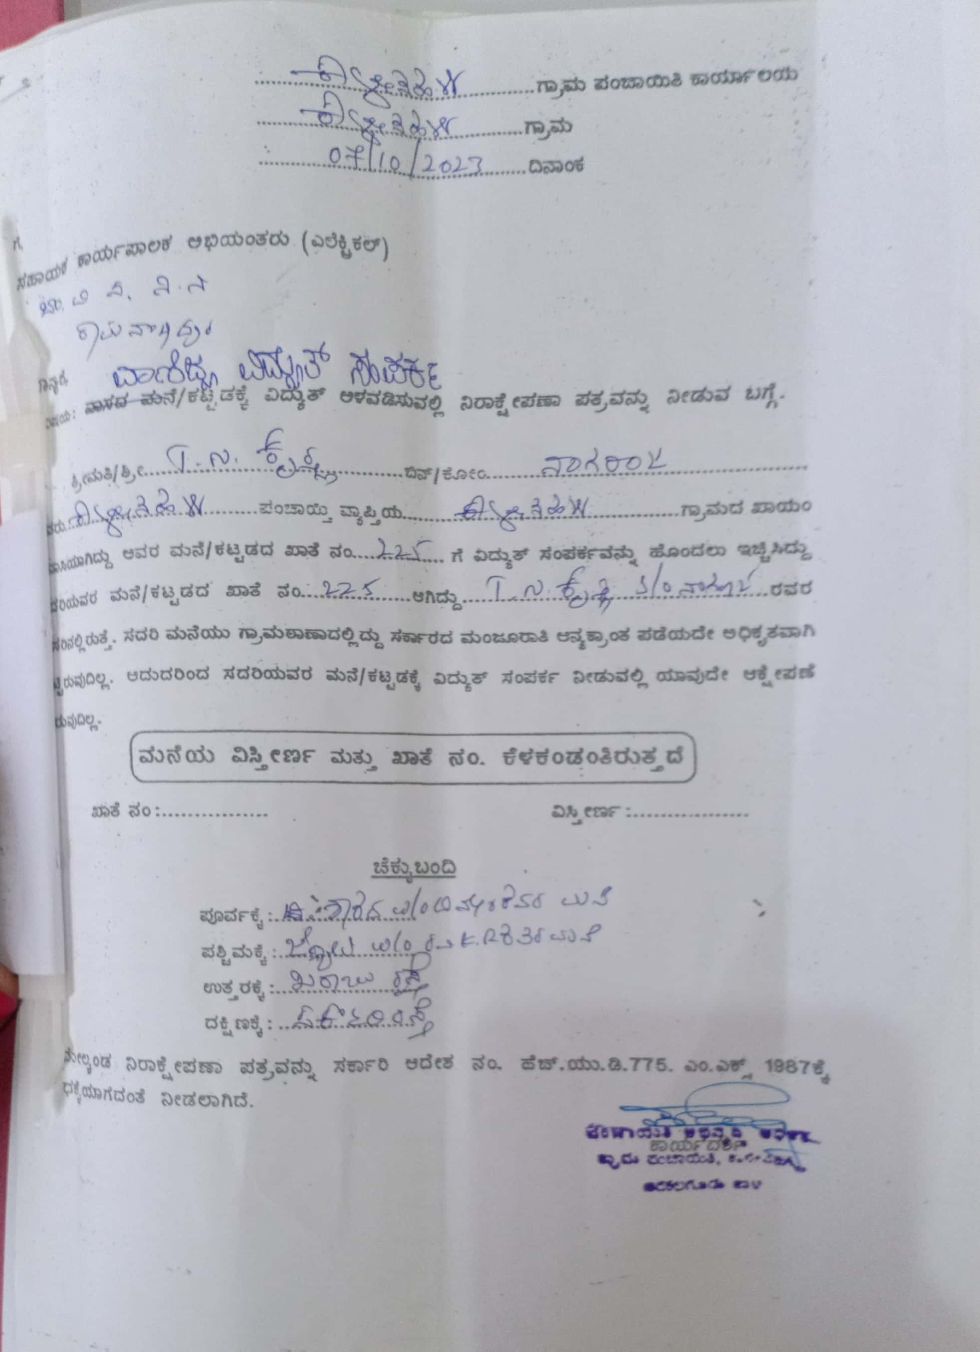 ಗ್ರಾಮ ಪಂಚಾಯಿತಿ ಕಾರ್ಯಾಲಯ
ಗ್ರಾಮ
07/10/2023 ದಿನಾಂಕ
ಗೆ,
ಸಹಾಯಕ ಕಾರ್ಯಪಾಲಕ ಅಭಿಯಂತರು (ಎಲೆಕ್ಟ್ರಿಕಲ್)
ರಾಮನಾಥಪುರ
ಮಾನ್ಯರೆ,
ವಾಣಿಜ್ಯ ವಿದ್ಯುತ್ ಸಂಪರ್ಕ
ವಿಷಯ: ವಾಸದ ಮನೆ/ಕಟ್ಟಡಕ್ಕೆ ವಿದ್ಯುತ್ ಅಳವಡಿಸುವಲ್ಲಿ ನಿರಾಕ್ಷೇಪಣಾ ಪತ್ರವನ್ನು ನೀಡುವ ಬಗ್ಗೆ.
ಶ್ರೀಮತಿ/ಶ್ರೀ T.N. ಕೃಷ್ಣ ಬಿನ್/ಕೋಂ ನಾಗರಾಜ
ಪಂಚಾಯ್ತಿ ವ್ಯಾಪ್ತಿಯ ಗ್ರಾಮದ ಖಾಯಂ
ವಾಸಿಯಾಗಿದ್ದು ಅವರ ಮನೆ/ಕಟ್ಟಡದ ಖಾತೆ ನಂ. 225 ಗೆ ವಿದ್ಯುತ್ ಸಂಪರ್ಕವನ್ನು ಹೊಂದಲು ಇಚ್ಛಿಸಿದ್ದು
ಸದರಿಯವರ ಮನೆ/ಕಟ್ಟಡದ ಖಾತೆ ನಂ. 225 ಆಗಿದ್ದು T.N. ಕೃಷ್ಣ S/o ನಾಗರಾಜ ರವರ
ಹೆಸರಿನಲ್ಲಿರುತ್ತೆ. ಸದರಿ ಮನೆಯು ಗ್ರಾಮಠಾಣಾದಲ್ಲಿದ್ದು ಸರ್ಕಾರದ ಮಂಜೂರಾತಿ ಅನ್ಯಕ್ರಾಂತ ಪಡೆಯದೇ ಅಧಿಕೃತವಾಗಿ
ಕಟ್ಟಿರುವುದಿಲ್ಲ. ಆದುದರಿಂದ ಸದರಿಯವರ ಮನೆ/ಕಟ್ಟಡಕ್ಕೆ ವಿದ್ಯುತ್ ಸಂಪರ್ಕ ನೀಡುವಲ್ಲಿ ಯಾವುದೇ ಆಕ್ಷೇಪಣೆ
ಇರುವುದಿಲ್ಲ.
ಮನೆಯ ವಿಸ್ತೀರ್ಣ ಮತ್ತು ಖಾತೆ ನಂ. ಕೆಳಕಂಡಂತಿರುತ್ತದೆ
ಖಾತೆ ನಂ:................ ವಿಸ್ತೀರ್ಣ:.................
ಚೆಕ್ಕುಬಂದಿ
ಪೂರ್ವಕ್ಕೆ: ಮನೆ
ಪಶ್ಚಿಮಕ್ಕೆ: ಮನೆ
ಉತ್ತರಕ್ಕೆ: ಖರಾಬು ರಸ್ತೆ
ದಕ್ಷಿಣಕ್ಕೆ:
ಮೇಲ್ಕಂಡ ನಿರಾಕ್ಷೇಪಣಾ ಪತ್ರವನ್ನು ಸರ್ಕಾರಿ ಆದೇಶ ನಂ. ಹೆಚ್.ಯು.ಡಿ.775. ಎಂ.ಎಕ್ಸ್ 1987ಕ್ಕೆ
ಧಕ್ಕೆಯಾಗದಂತೆ ನೀಡಲಾಗಿದೆ.
ಪಂಚಾಯಿತಿ ಅಭಿವೃದ್ಧಿ ಅಧಿಕಾರಿ
ಕಾರ್ಯದರ್ಶಿ
ಗ್ರಾಮ ಪಂಚಾಯಿತಿ,
ಅರಕಲಗೂಡು ತಾಲ